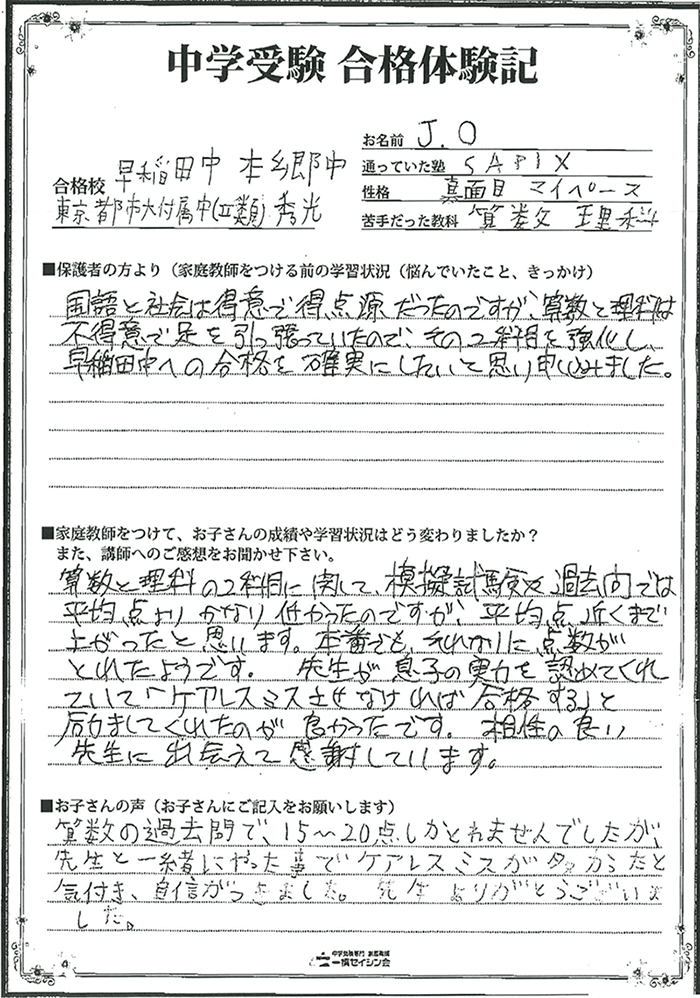 中学受験 合格体験記
お名前 J.O
通っていた塾 SAPIX
性格 真面目 マイペース
苦手だった教科 算数 理科
合格校 早稲田中 本郷中
東京都市大付属中(Ⅱ類) 秀光
■保護者の方より(家庭教師をつける前の学習状況(悩んでいたこと、きっかけ)
国語と社会は得意で得点源だったのですが、算数と理科は
不得意で足を引っ張っていたので、その2科目を強化し、
早稲田中への合格を確実にしたいと思い申し込みました。
■家庭教師をつけて、お子さんの成績や学習状況はどう変わりましたか?
また、講師へのご感想をお聞かせ下さい。
算数と理科の2科目に関して、模擬試験や過去問では
平均点よりかなり低かったのですが、平均点近くまで
上がったと思います。本番でも、それなりに点数が
とれたようです。 先生が息子の実力を認めてくれ
ていて「ケアレスミスさせなければ合格する」と
励ましてくれたのが良かったです。 相性の良い
先生に出会えて感謝しています。
■お子さんの声(お子さんにご記入をお願いします)
算数の過去問で、15〜20点しかとれませんでしたが、
先生と一緒にやった事でケアレスミスが多かったと
気付き、自信がつきました。先生ありがとうございま
した。
中学受験専門 家庭教師
一橋セイシン会